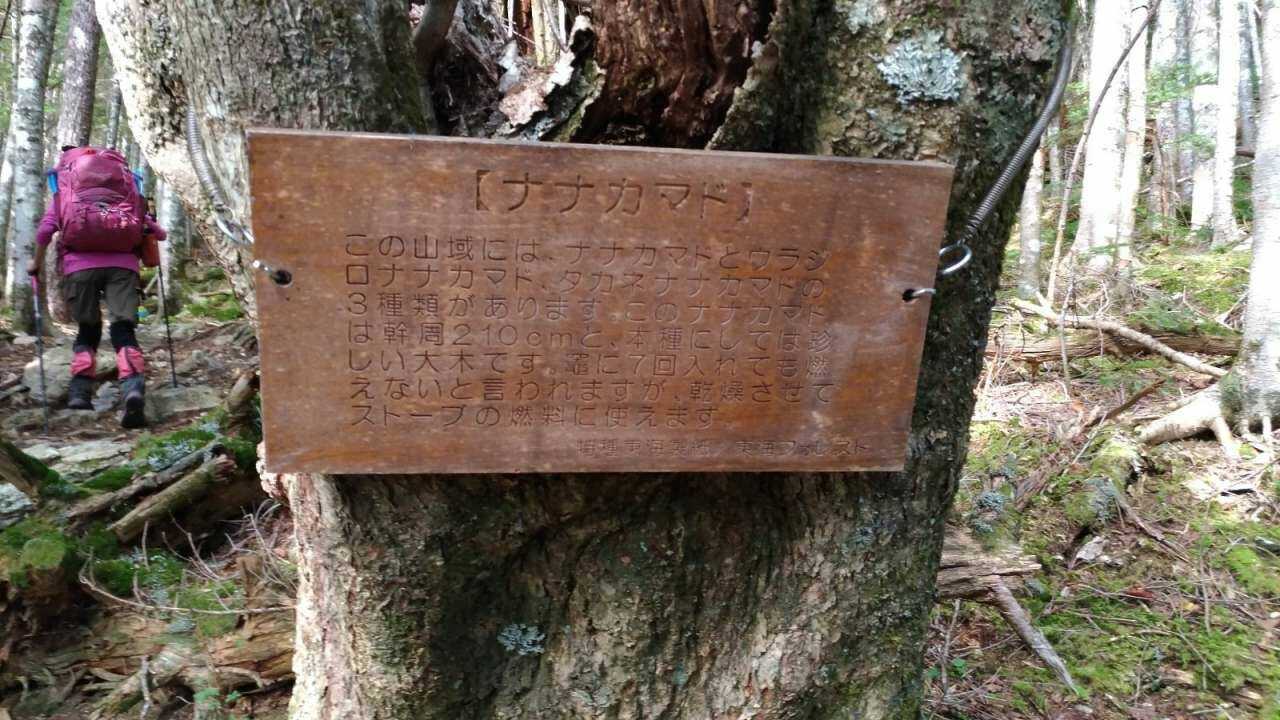 【ナナカマド】
この山域には、ナナカマドとウラジ
ロナナカマド、タカネナナカマドの
3種類があります。このナナカマド
は幹周210cmと、本種にしては珍
しい大木です。竈に7回入れても燃
えないと言われますが、乾燥させて
ストーブの燃料に使えます。
特種東海製紙／東海フォレスト